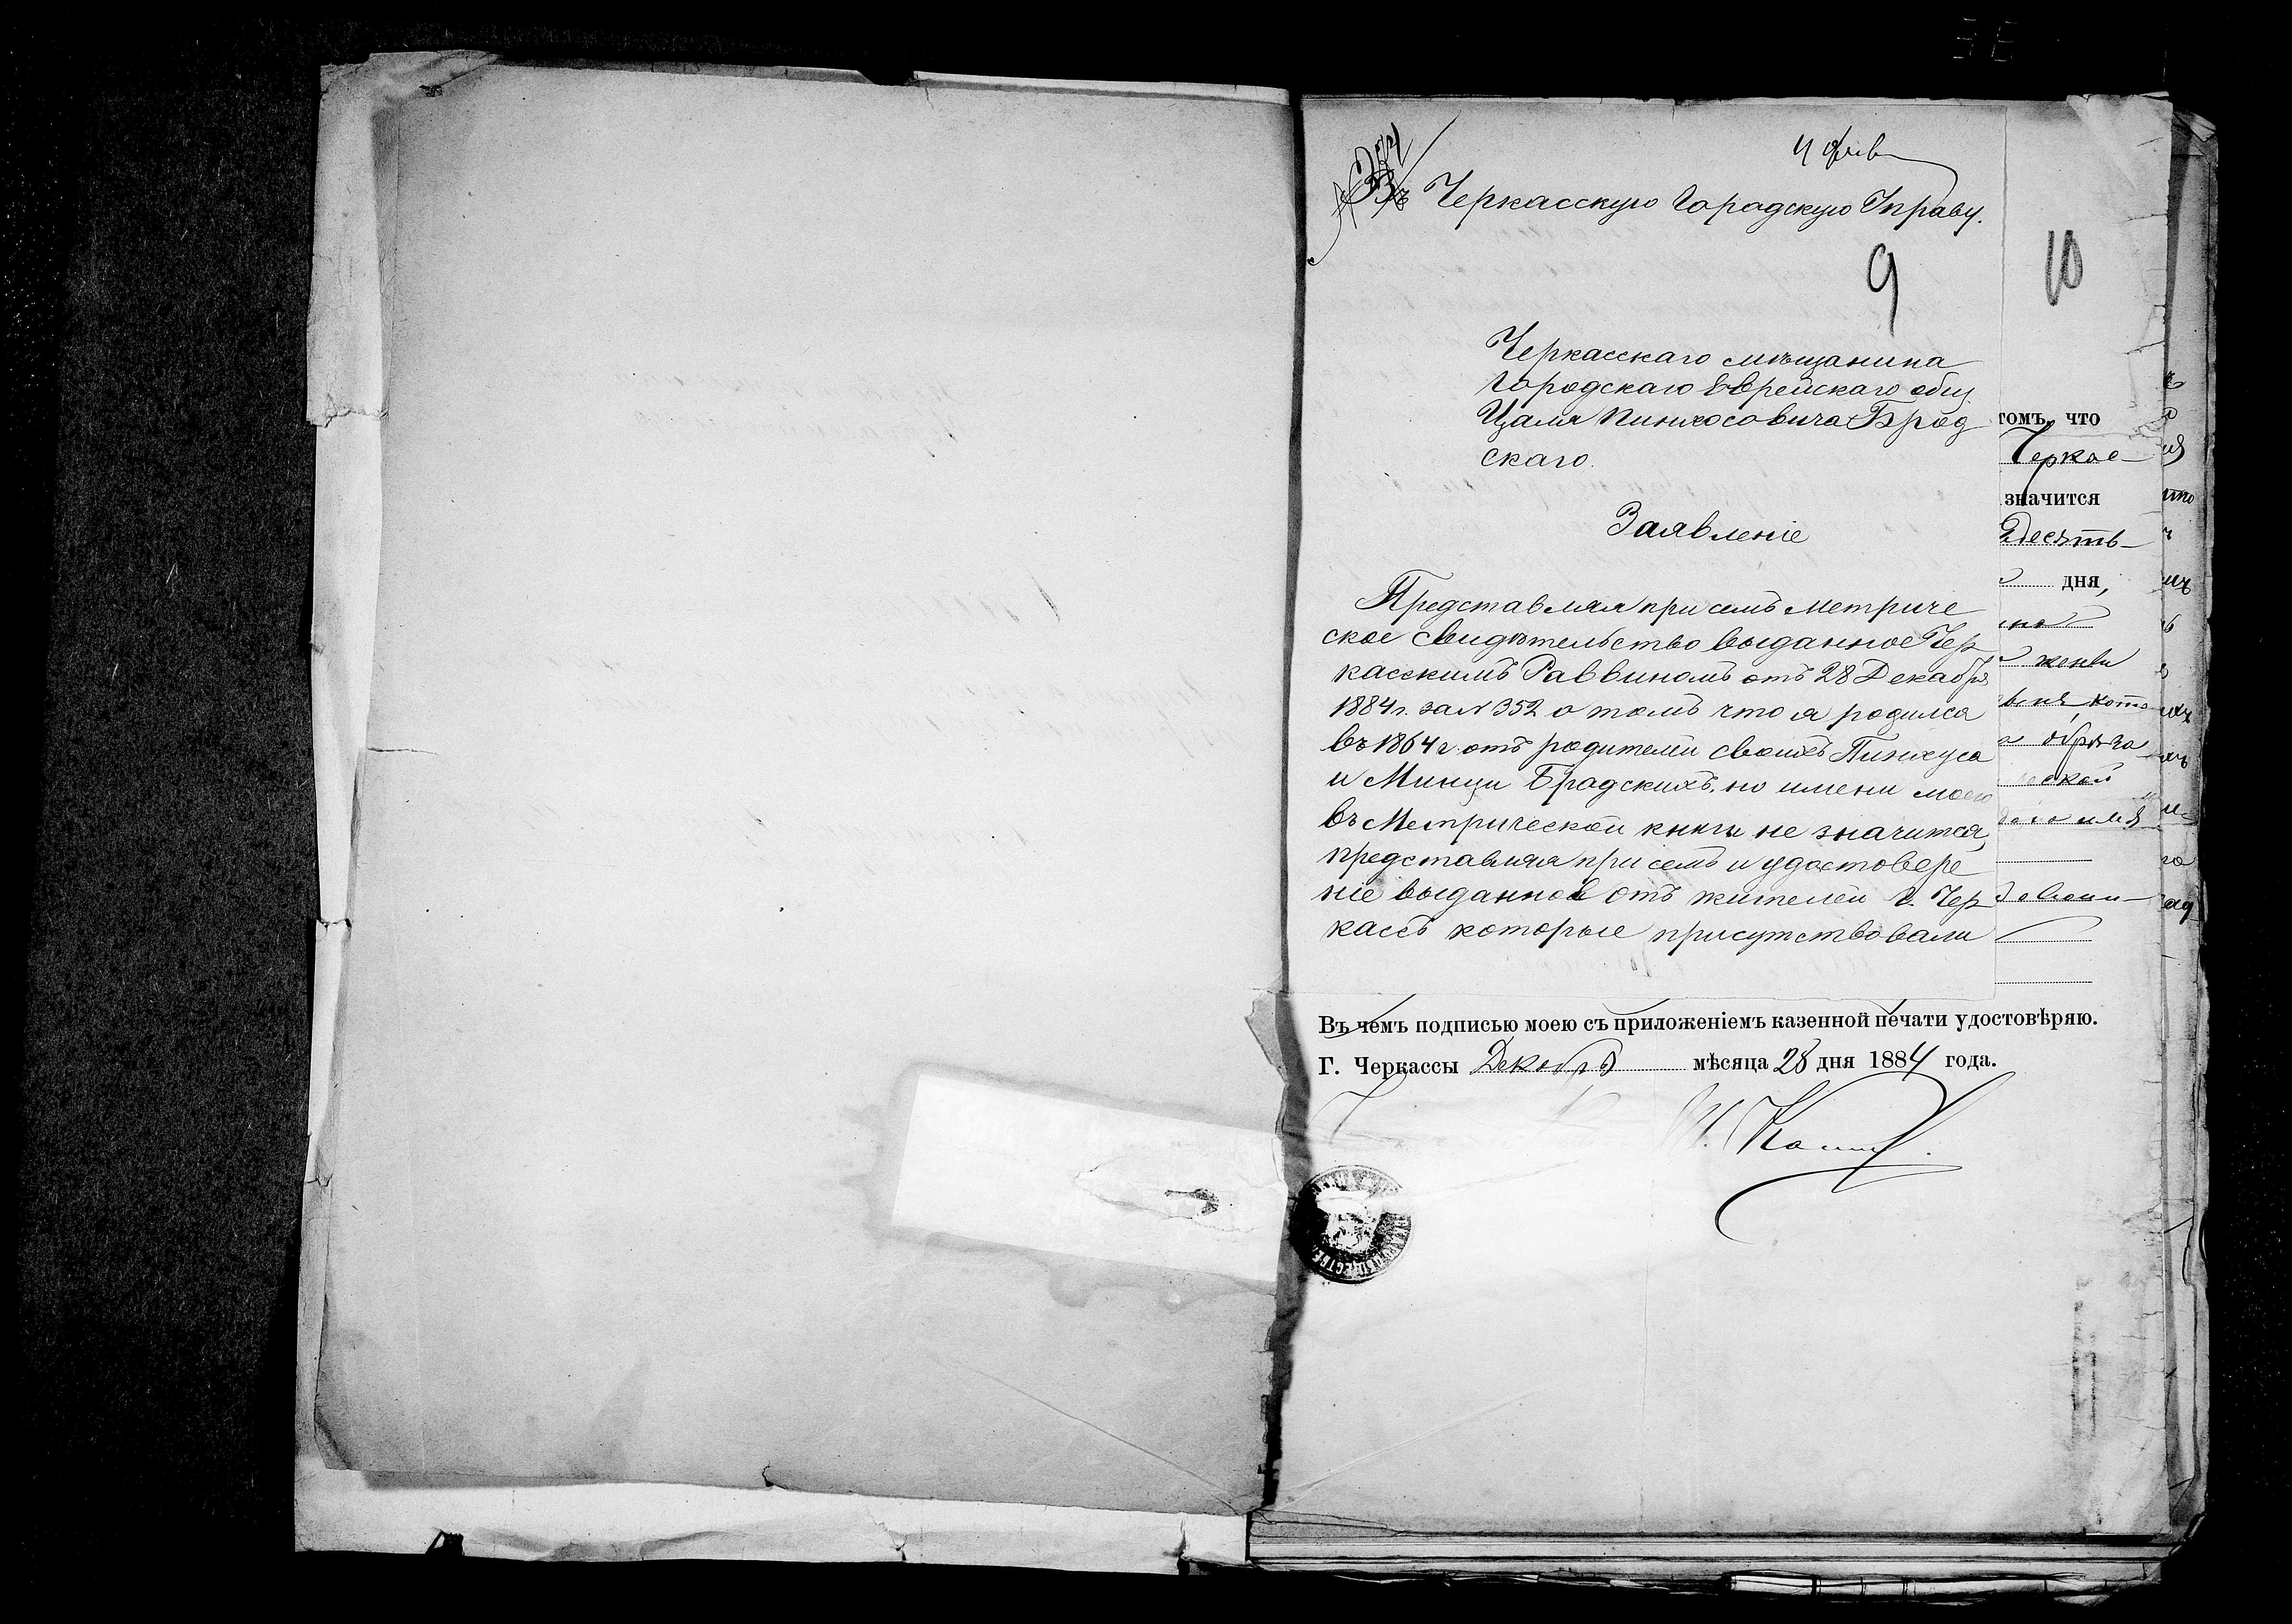 Въ Черкасскую Городскую Управу.
9
10
Черкасскаго мѣщанина
Городскаго Еврейскаго общ.
Цаля Пинхосовича Брод
скаго.
Заявленіе
Представляя при семъ метриче
ское свидѣтельство выданное Чер
касскимъ Раввиномъ отъ 28 Декабря
1884 г. за N 352 о томъ что я родился
въ 1864 г. отъ родителей своихъ Пинхуса
и Минци Бродскихъ. но имени моего
въ Метрической книги не значится,
представляя при семъ и удостовере
ніе выданное отъ жителей г. Чер
кассъ которые присутствовали
томъ, что
Черкас-
значится
десять-
дня,
жены
кото
обрѣза
ской
имя
Въ чемъ подписью моею съ приложеніемъ казенной печати удостовѣряю.
Г. Черкассы Декабря мѣсяца 28 дня 1884 года.